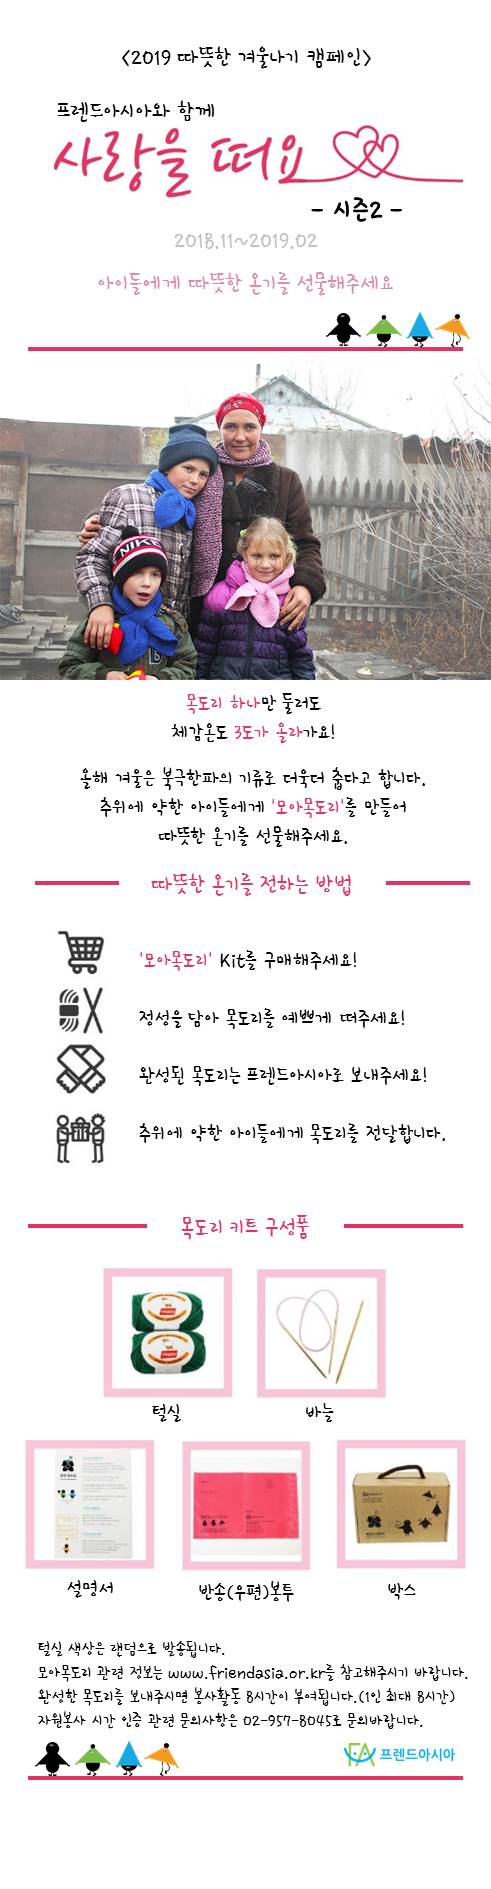 <2019 따뜻한 겨울나기 캠페인>
프렌드아시아와 함께
사랑을 떠요
- 시즌2 -
2018.11~2019.02
아이들에게 따뜻한 온기를 선물해주세요
NIKE
목도리 하나만 둘러도
체감온도 3도가 올라가요!
올해 겨울은 북극한파의 기류로 더욱더 춥다고 합니다.
추위에 약한 아이들에게 '모아목도리'를 만들어
따뜻한 온기를 선물해주세요.
따뜻한 온기를 전하는 방법
'모아목도리' Kit를 구매해주세요!
정성을 담아 목도리를 예쁘게 떠주세요!
완성된 목도리는 프렌드아시아로 보내주세요!
추위에 약한 아이들에게 목도리를 전달합니다.
목도리 키트 구성품
털실
바늘
설명서
반송(우편)봉투
박스
털실 색상은 랜덤으로 발송됩니다.
모아목도리 관련 정보는 www.friendasia.or.kr를 참고해주시기 바랍니다.
완성한 목도리를 보내주시면 봉사활동 8시간이 부여됩니다.(1인 최대 8시간)
자원봉사 시간 인증 관련 문의사항은 02-957-8045로 문의바랍니다.
FA 프렌드아시아